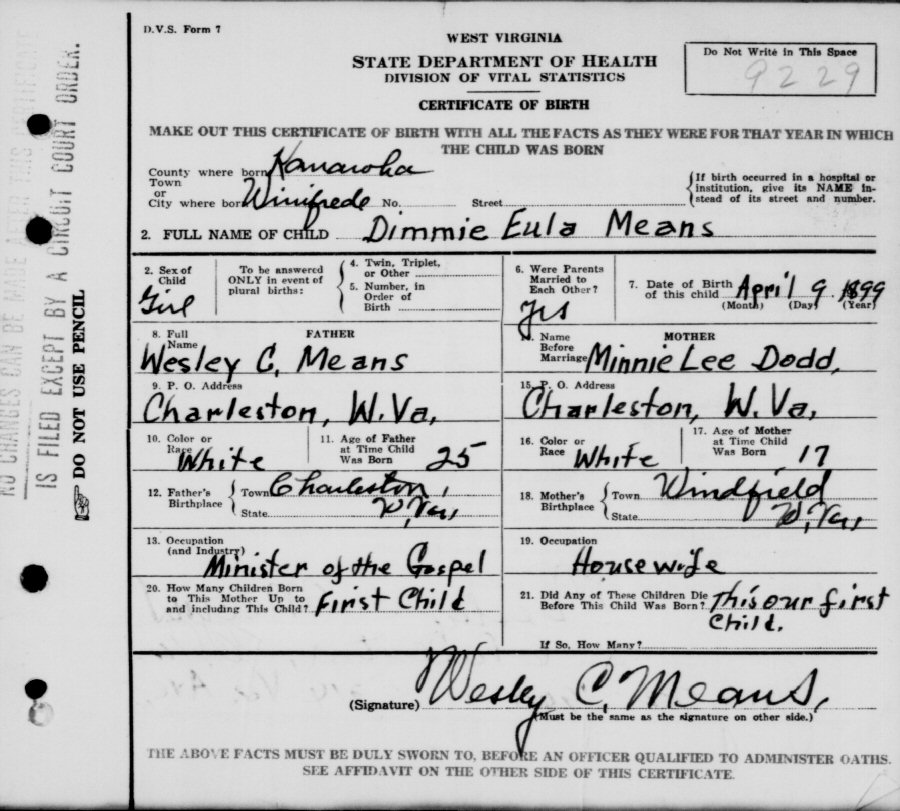 D.V.S. Form 7
WEST VIRGINIA
STATE DEPARTMENT OF HEALTH
DIVISION OF VITAL STATISTICS
CERTIFICATE OF BIRTH
Do Not Write in This Space
9229
MAKE OUT THIS CERTIFICATE OF BIRTH WITH ALL THE FACTS AS THEY WERE FOR THAT YEAR IN WHICH
THE CHILD WAS BORN
County where born Kanawha
Town
or
City where born Winifrede No. Street
If birth occurred in a hospital or
institution, give its NAME in-
stead of its street and number.
2. FULL NAME OF CHILD Dimmie Eula Means
2. Sex of
Child
Girl
To be answered
ONLY in event of
plural births:
4. Twin, Triplet,
or Other
5. Number, in
Order of
Birth
6. Were Parents
Married to
Each Other?
Yes
7. Date of Birth
of this child April 9 1899
(Month) (Day) (Year)
8. Full
Name
FATHER
Wesley C, Means
Name
Before
Marriage
MOTHER
Minnie Lee Dodd,
9. P. O. Address
Charleston, W.Va,
15. P. O. Address
Charleston, W.Va,
10. Color or
Race White
11. Age of Father
at Time Child
Was Born 25
16. Color or
Race White
17. Age of Mother
at Time Child
Was Born 17
12. Father's
Birthplace
Town Charleston,
State W,Va,
18. Mother's
Birthplace
Town Windfield
State W,Va,
13. Occupation
(and Industry)
Minister of the Gospel
19. Occupation
House wife
20. How Many Children Born
to This Mother Up to
and including This Child? First Child
21. Did Any of These Children Die
Before This Child Was Born? This our first
Child.
If So, How Many?
(Signature) Wesley C, Means,
(Must be the same as the signature on other side.)
THE ABOVE FACTS MUST BE DULY SWORN TO, BEFORE AN OFFICER QUALIFIED TO ADMINISTER OATHS.
SEE AFFIDAVIT ON THE OTHER SIDE OF THIS CERTIFICATE.
NO CHANGES CAN BE MADE AFTER THIS CERTIFICATE
IS FILED EXCEPT BY A CIRCUIT COURT ORDER.
DO NOT USE PENCIL